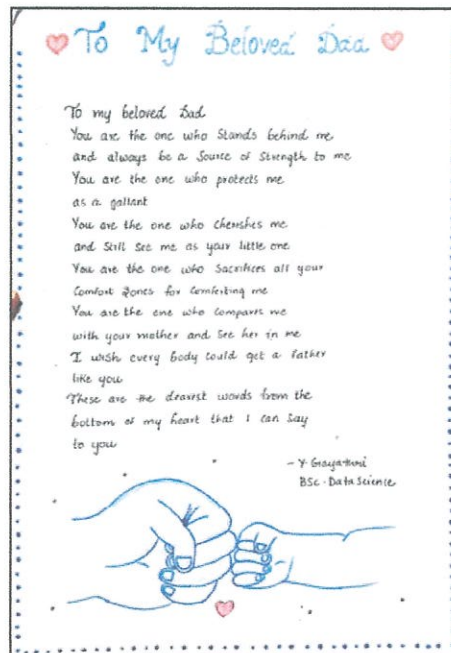 To My Beloved Dad
To my beloved Dad
You are the one who Stands behind me
and always be a Source of Strength to me
You are the one who protects me
as a gallant
You are the one who cherishes me
and Still See me as your little one
You are the one who Sacrifices all your
Comfort Zones for Comforting me
You are the one who Compares me
with your mother and See her in me
I wish every body could get a father
like you
These are the dearest words from the
bottom of my heart that I can Say
to you
- Y. Gayathri
BSc - Data Science